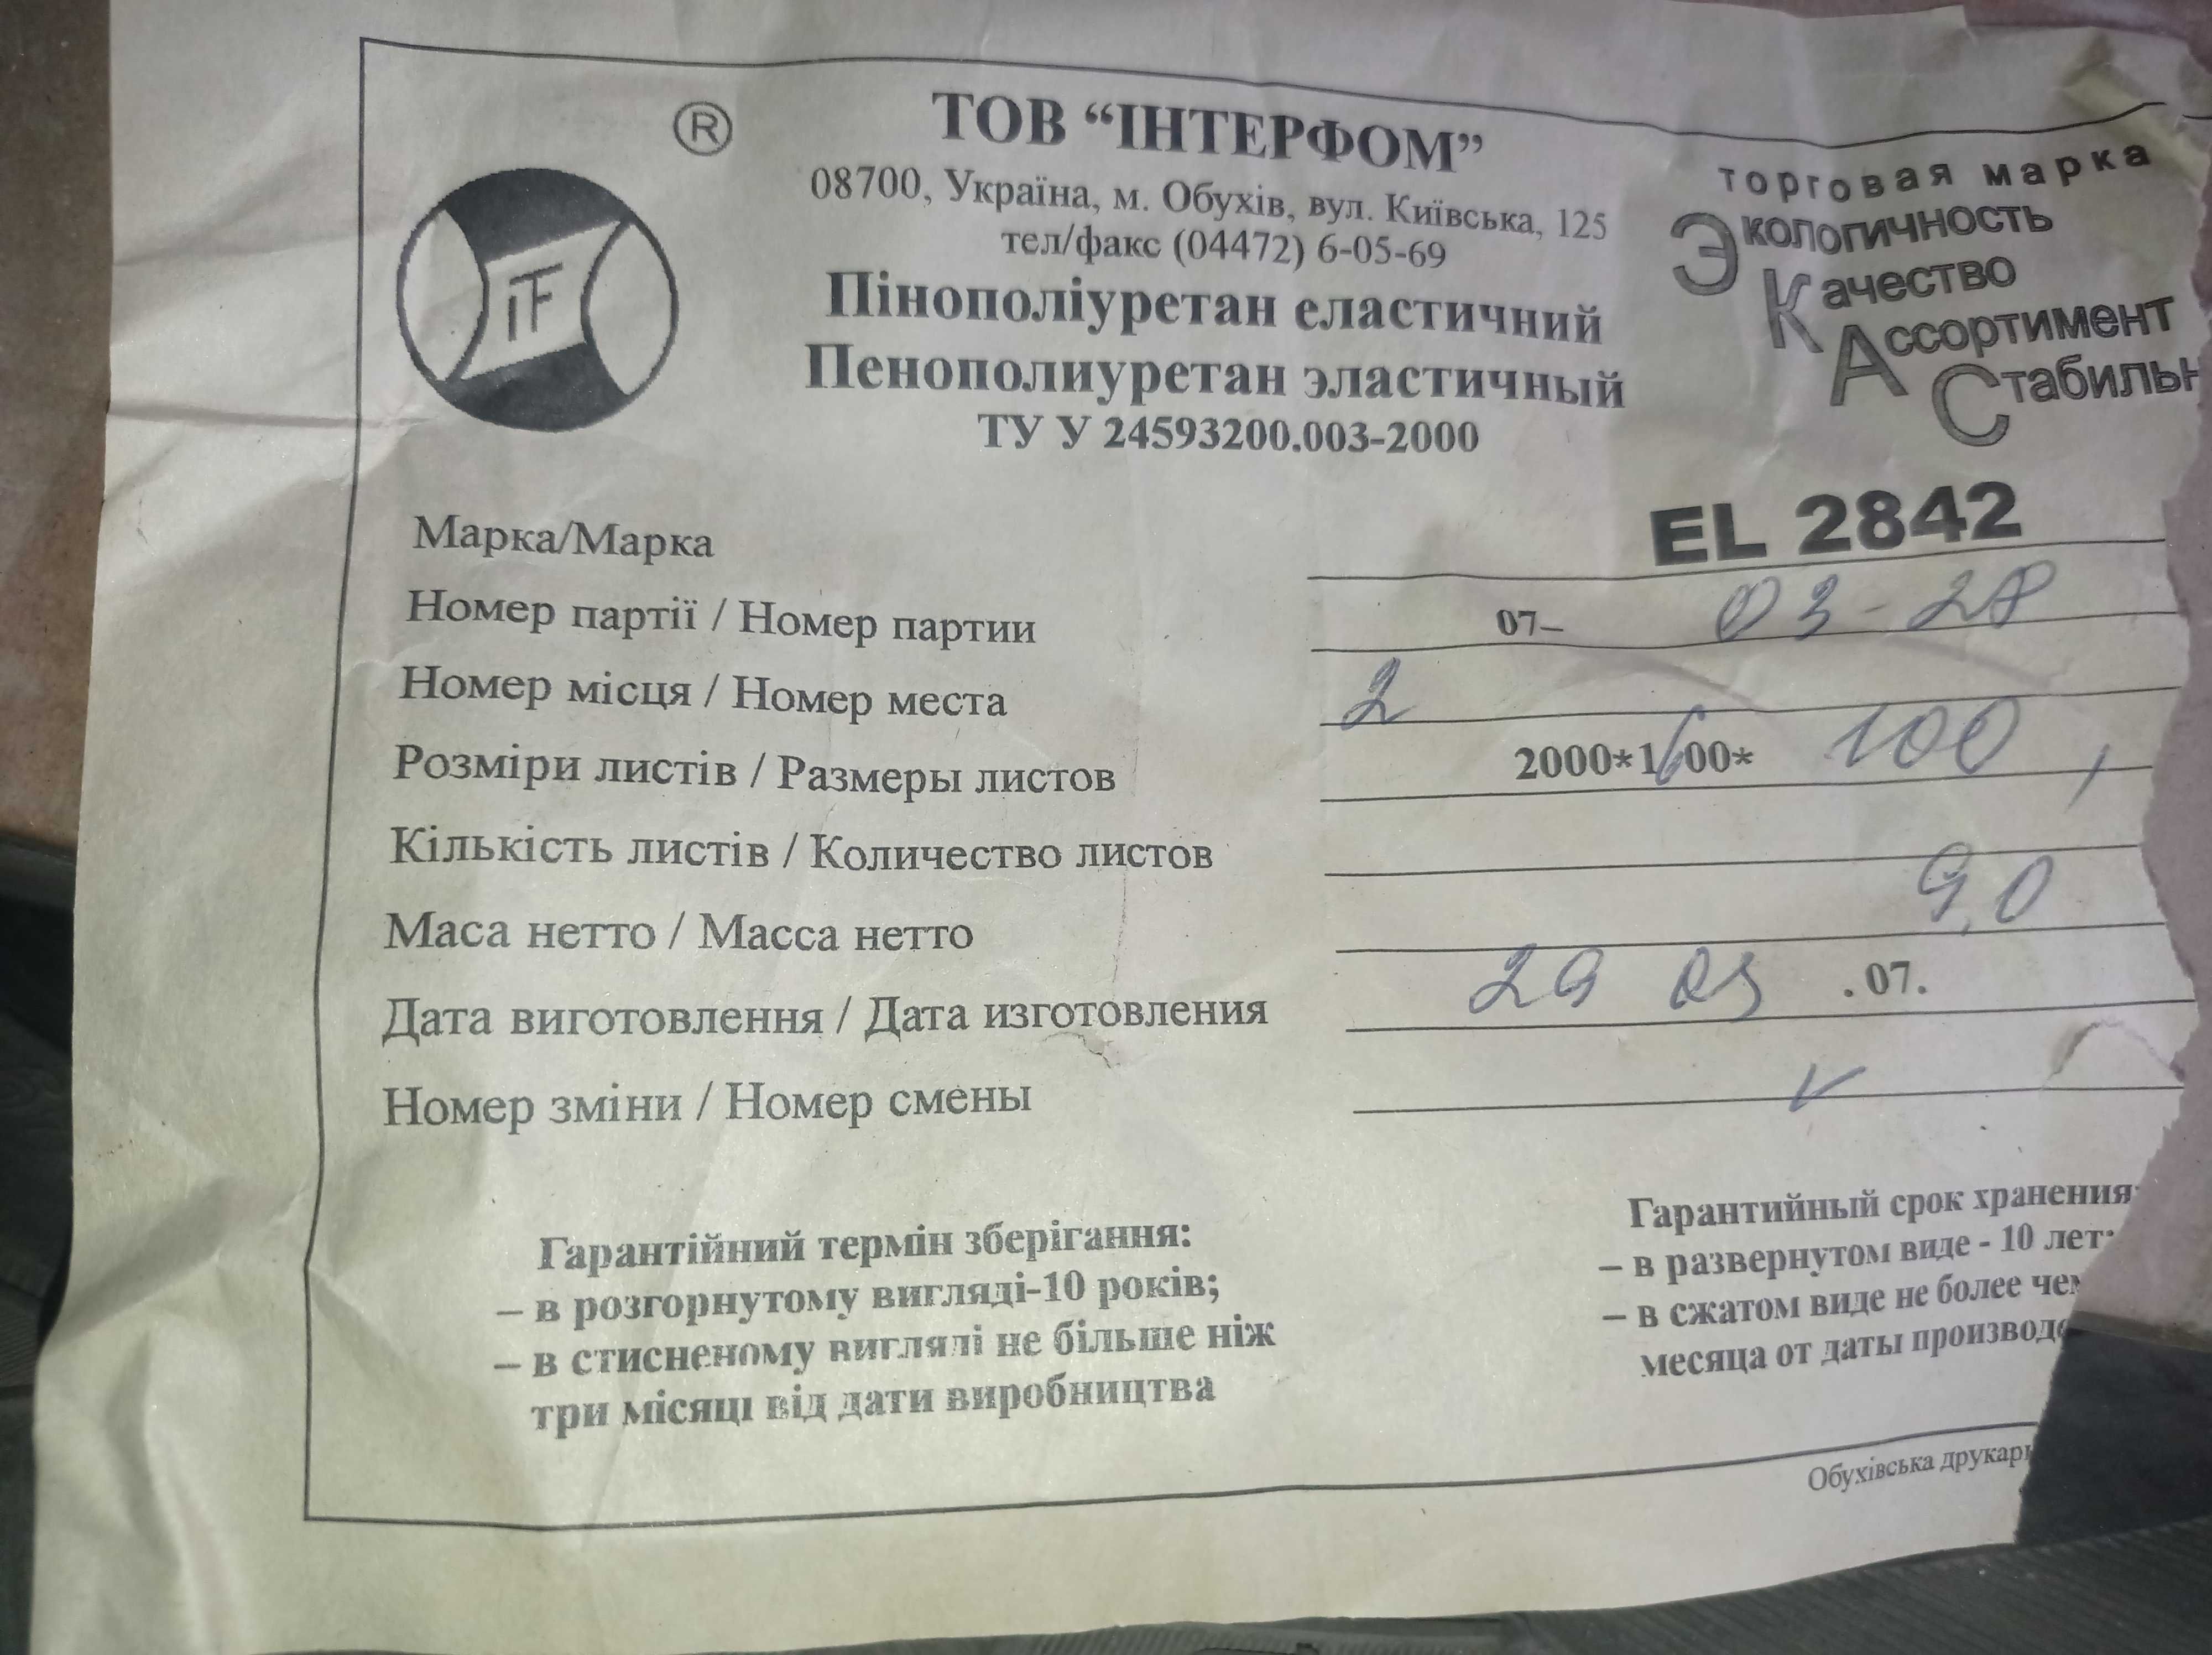 ®
iF
ТОВ “ІНТЕРФОМ”
08700, Україна, м. Обухів, вул. Київська, 125
тел/факс (04472) 6-05-69
Пінополіуретан еластичний
Пенополиуретан эластичный
ТУ У 24593200.003-2000
торговая марка
Экологичность
Качество
Ассортимент
Стабильн
Марка/Марка EL 2842
Номер партії / Номер партии 07– 03-28
Номер місця / Номер места 2
Розміри листів / Размеры листов 2000*1600* 100
Кількість листів / Количество листов
Маса нетто / Масса нетто 9,0
Дата виготовлення / Дата изготовления 29 03 .07.
Номер зміни / Номер смены
Гарантійний термін зберігання:
– в розгорнутому вигляді-10 років;
– в стисненому вигляді не більше ніж
три місяці від дати виробництва
Гарантийный срок хранения
– в развернутом виде - 10 лет
– в сжатом виде не более чем
месяца от даты производ
Обухівська друкар